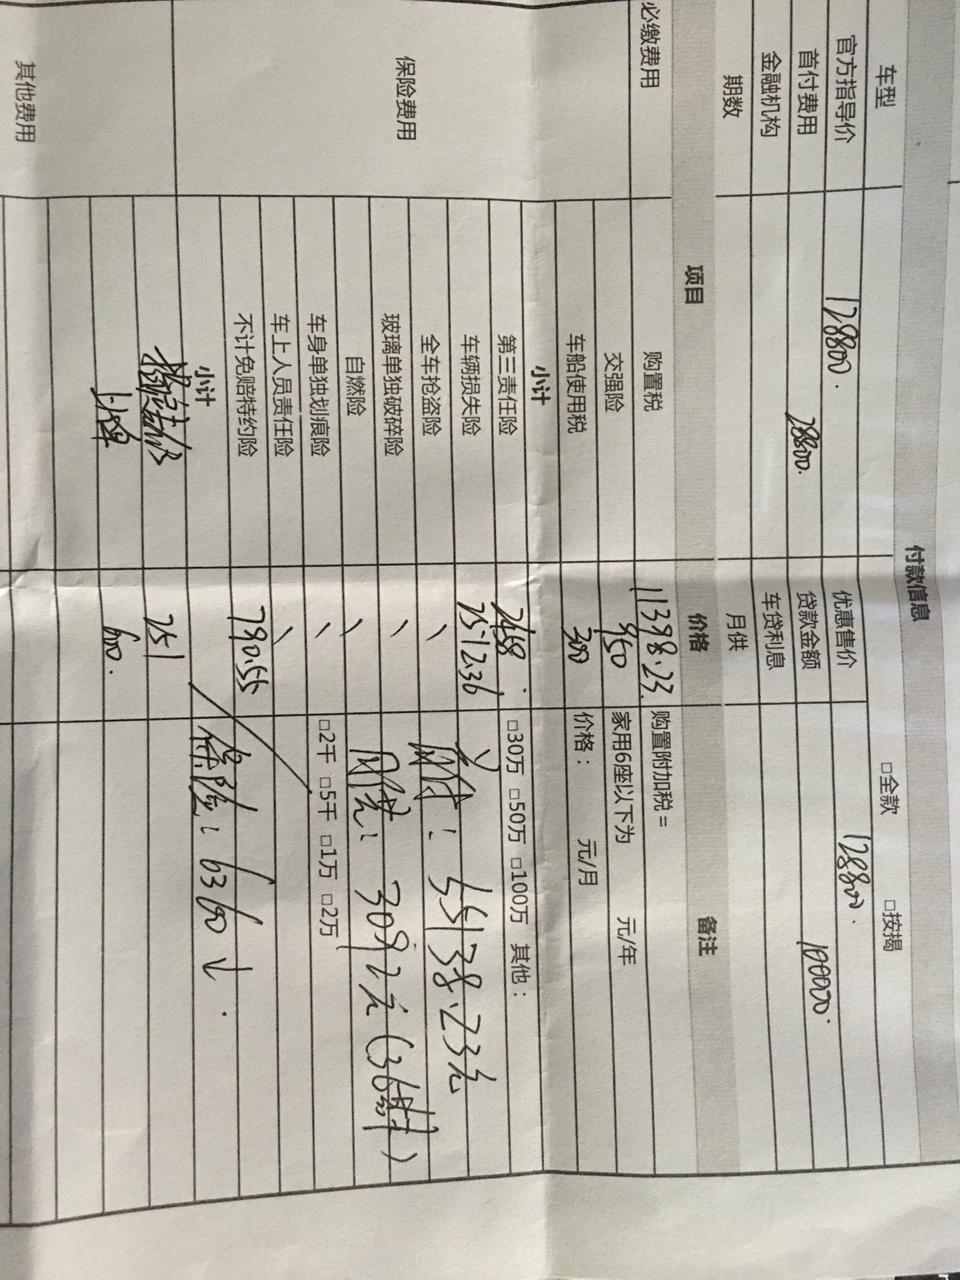 付款信息
车型 □全款 □按揭
官方指导价 128800. 优惠售价 128800.
首付费用 28800. 贷款金额 100000.
金融机构 车贷利息
期数 月供
项目 价格 备注
必缴费用 购置税 11398.23. 购置附加税=
交强险 950 家用6座以下为 元/年
车船使用税 300 价格: 元/月
小计
保险费用
第三责任险 2468. □30万 □50万 □100万 其他:
车辆损失险 2512.36 首付: 55138.23元
全车抢盗险 \
玻璃单独破碎险 \ 月供: 3092元(36期)
自燃险 \
车身单独划痕险 \ □2千 □5千 □1万 □2万
车上人员责任险 \
不计免赔特约险 790.55
小计 保险: 6360
其他费用
251
上牌 600.